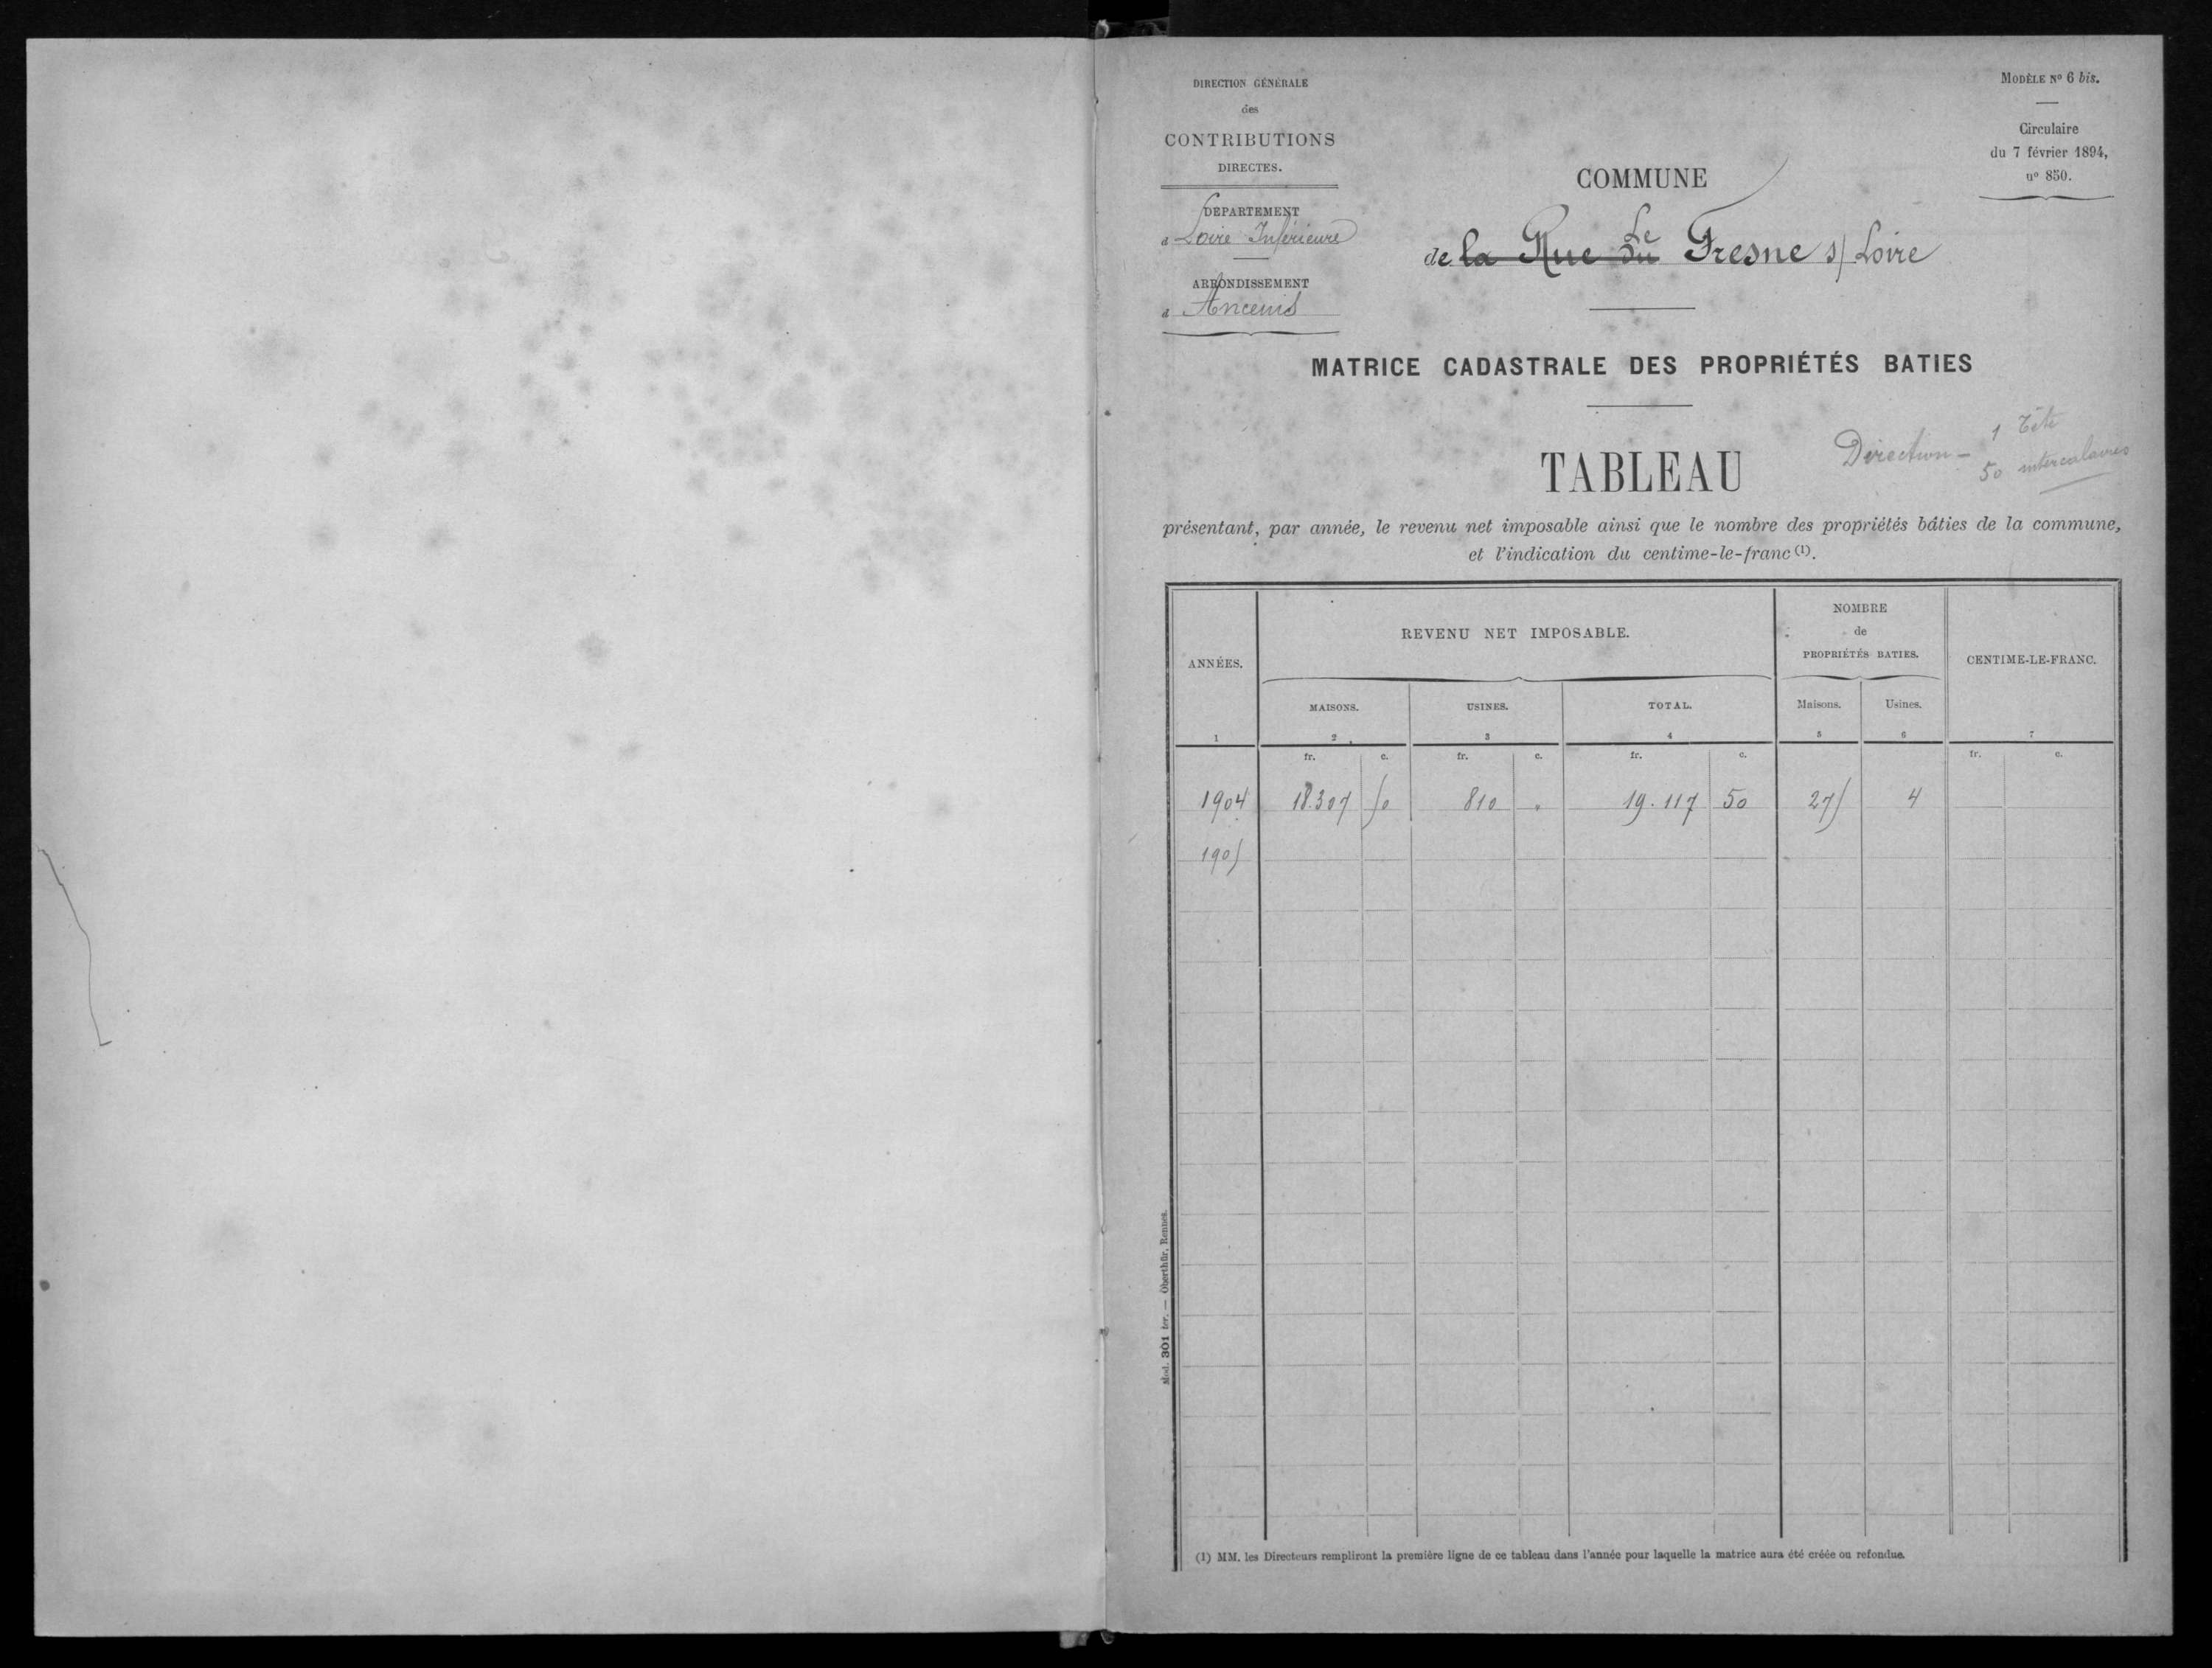 DIRECTION GÉNÉRALE
des
CONTRIBUTIONS
DIRECTES.
DÉPARTEMENT
d Loire Inférieure
ARRONDISSEMENT
d Ancenis
MODÈLE Nº 6 bis.
Circulaire
du 7 février 1894,
nº 850.
COMMUNE
de la Rue du Le Fresne s/ Loire
MATRICE CADASTRALE DES PROPRIÉTÉS BATIES
Direction - 1 Tête
50 intercalaires
TABLEAU
présentant, par année, le revenu net imposable ainsi que le nombre des propriétés bâties de la commune,
et l'indication du centime-le-franc (1).
ANNÉES. REVENU NET IMPOSABLE. NOMBRE de PROPRIÉTÉS BATIES. CENTIME-LE-FRANC.
MAISONS. USINES. TOTAL. Maisons. Usines.
1 2 3 4 5 6 7
fr. c. fr. c. fr. c. fr. c.
1904 18.307 50 810 " 19.117 50 275 4
1905
Mod. 301 ter. — Oberthür, Rennes.
(1) MM. les Directeurs rempliront la première ligne de ce tableau dans l'année pour laquelle la matrice aura été créée ou refondue.